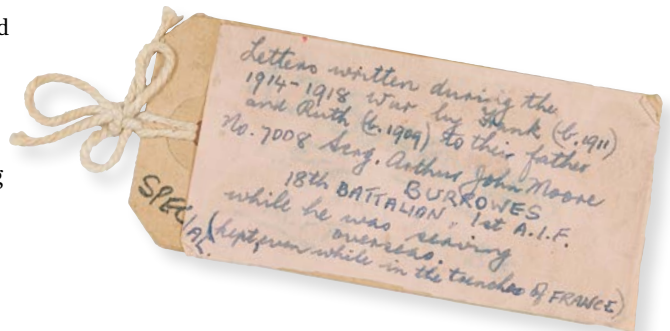 d
g
Letters written during the
1914-1918 War by Frank (b.1911)
and Ruth (b.1909) to their father
No. 7008 Serg. Arthur John Moore
BURROWES
18th BATTALION, 1st A.I.F.
while he was serving
overseas.
(kept even while in the trenches of FRANCE)
SPECIAL